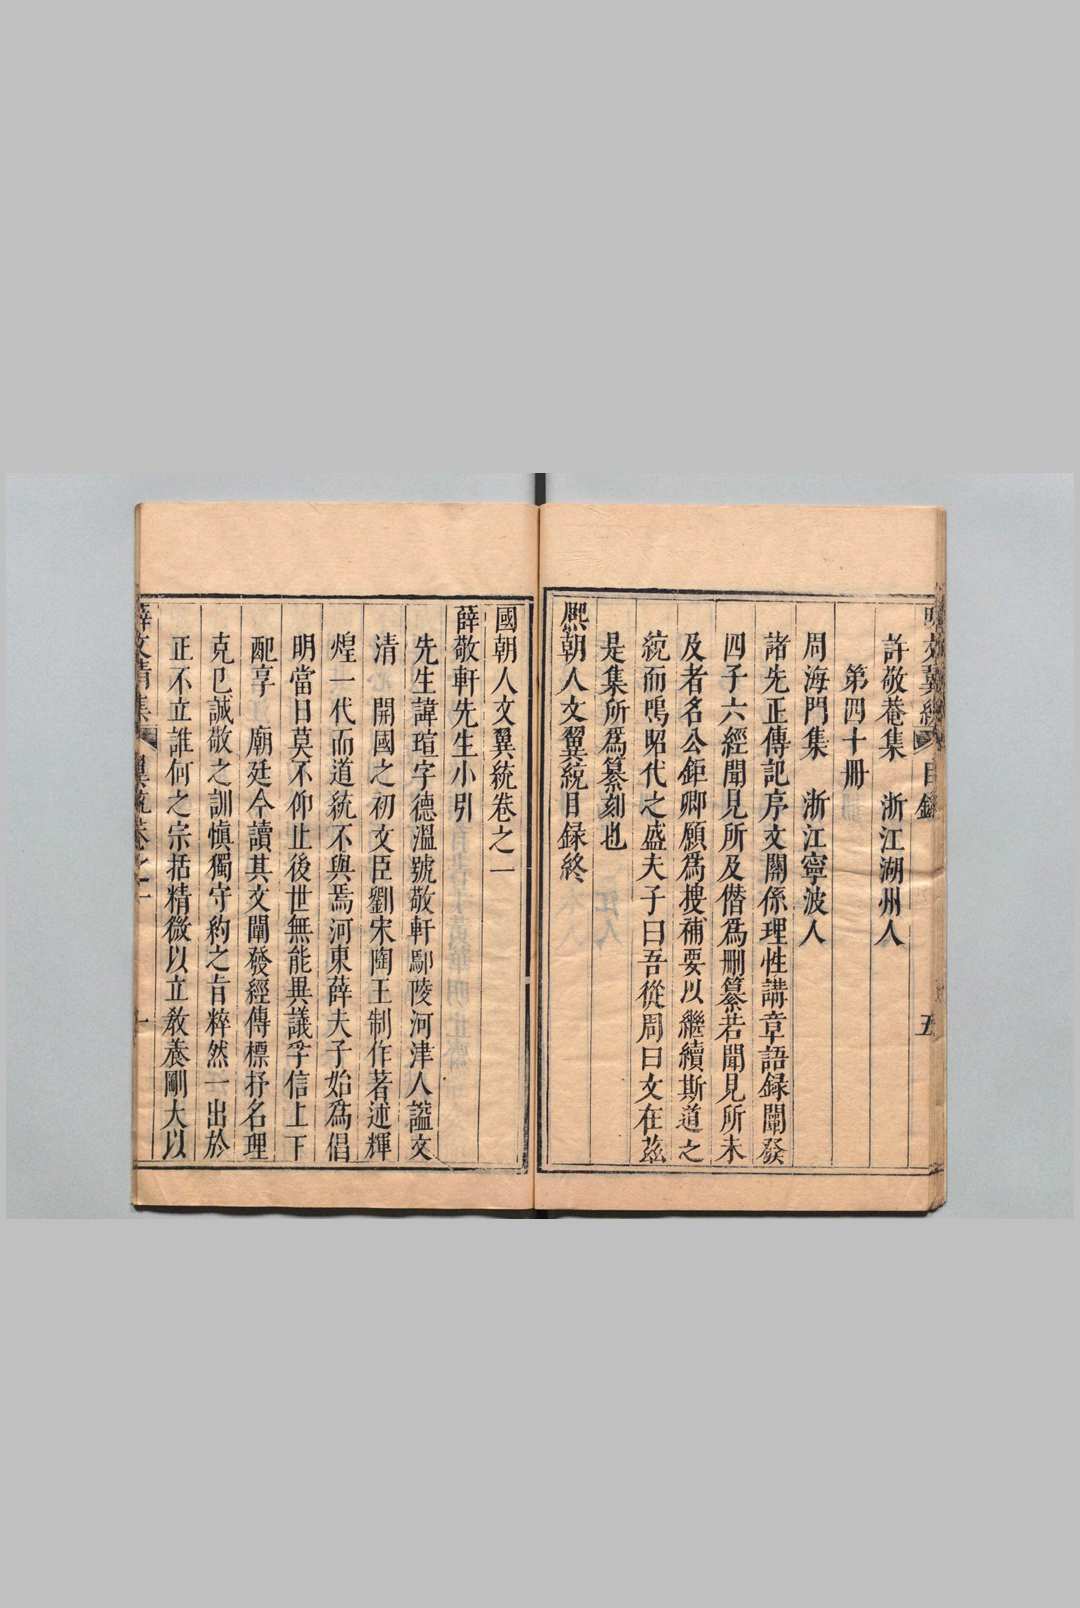 許敬菴集　浙江湖州人
第四十冊
周海門集　浙江寧波人
諸先正傳記序文關係理性講章語録闡發
四子六經聞見所及僭爲刪纂若聞見所未
及者名公鉅卿願爲搜補要以繼續斯道之
統而鳴昭代之盛夫子曰吾從周曰文在兹
是集所爲纂刻也
熙朝人文翼統目録終
國朝人文翼統卷之一
薛敬軒先生小引
先生諱瑄字德溫號敬軒鄢陵河津人謚文
清　開國之初文臣劉宋陶王制作著述輝
煌一代而道統不與焉河東薛夫子始爲倡
明當日莫不仰止後世無能異議孚信上下
配享　廟廷今讀其文闡發經傳標抒名理
克已誠敬之訓愼獨守約之旨粹然一出於
正不立誰何之宗括精微以立教養剛大以
薛文清集　翼統卷之一　一